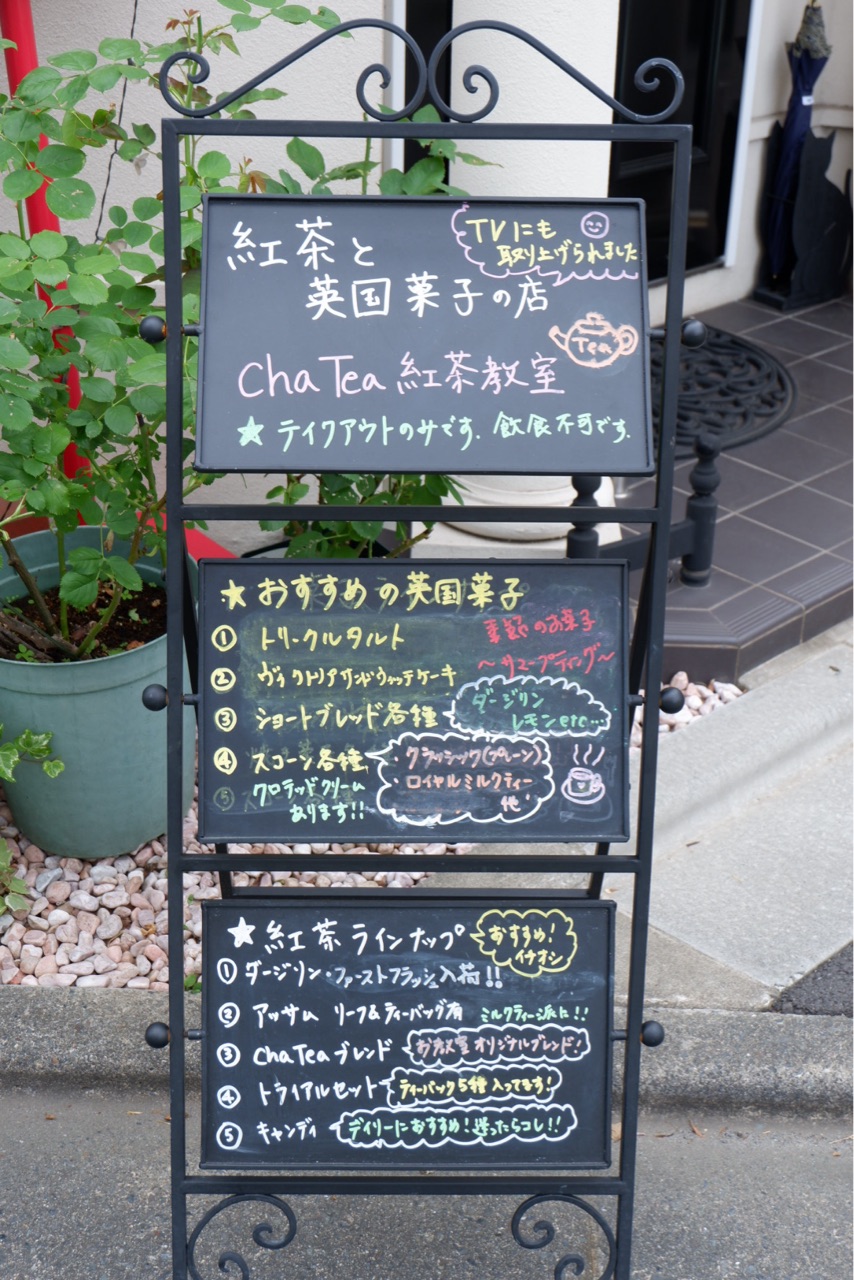 紅茶と
英国菓子の店
TVにも
取り上げられました
Tea
ChaTea 紅茶教室
★ テイクアウトのみです. 飲食不可です.
★ おすすめの英国菓子
① トリークルタルト
② ヴィクトリアサンドウィッチケーキ
③ ショートブレッド各種
ダージリン
レモンetc...
④ スコーン各種
・クラッシック(プレーン)
・ロイヤルミルクティー
他!
クロテッドクリーム
あります!!
季節のお菓子
〜サマープディング〜
★ 紅茶ラインナップ
おすすめ!
イチオシ
① ダージリン・ファーストフラッシュ入荷!!
② アッサム リーフ&ティーバッグ有 ミルクティー派に!!
③ ChaTeaブレンド お教室オリジナルブレンド!
④ トライアルセット ティーバック5種入ってます!
⑤ キャンディ デイリーにおすすめ!迷ったらコレ!!